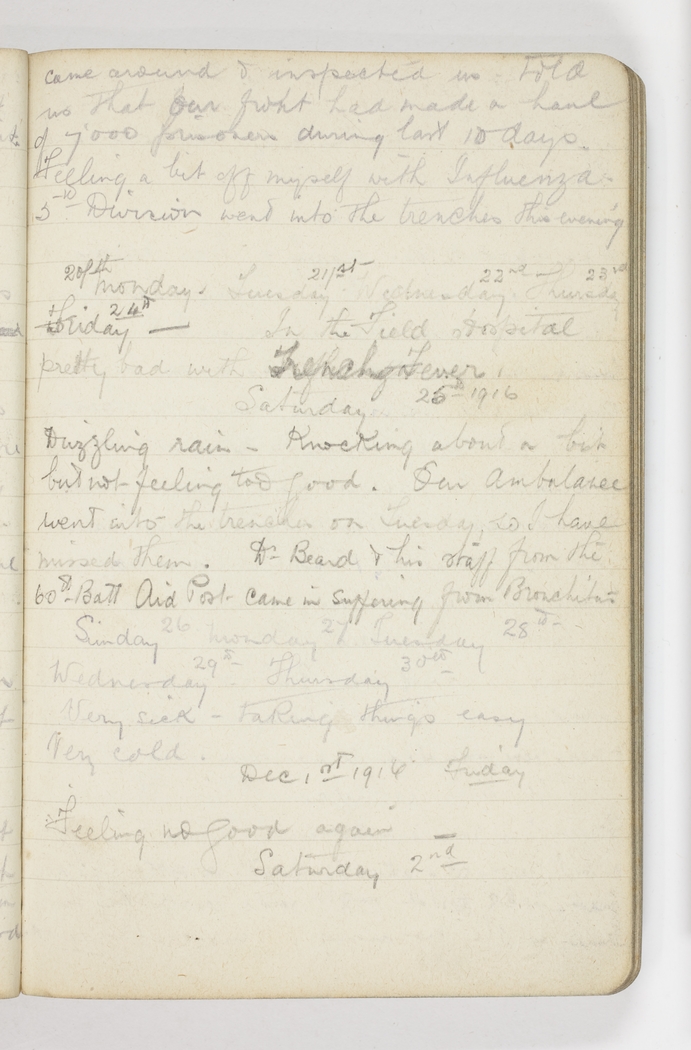 came around & inspected us. Told
us that our front had made a haul
of 7000 prisoners during last 10 days.
Feeling a bit off myself with Influenza.
5th Division went into the trenches this evening
20th Monday. Tuesday 21st Wednesday 22nd Thursday 23rd
Friday 24th — In the Field Hospital
pretty bad with Trench Fever.
Saturday 25th 1916
Drizzling rain – Knocking about a bit
but not feeling too good. Our Ambulance
went into the trenches on Tuesday, so I have
missed them. Dr Beard & his staff from the
60th Batt Aid Post came in suffering from Bronchitus
Sunday 26 Monday 27 Tuesday 28th –
Wednesday 29th – Thursday 30th –
Very sick – taking things easy
Very cold.
Dec, 1st 1916 Friday
Feeling no good again
Saturday 2nd